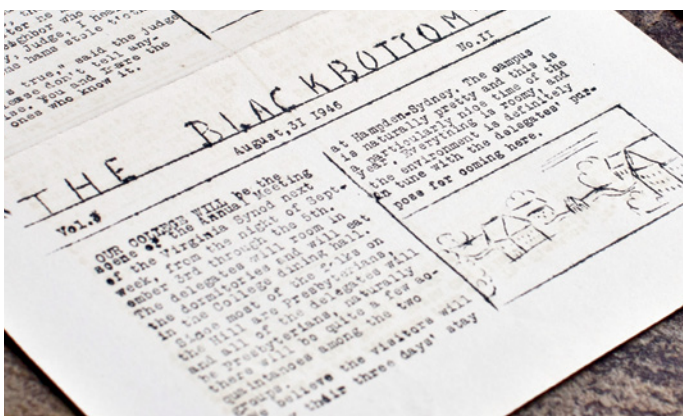 ter ne
eighbor who
y, Judge, I hea
hams stole t'oth
s true," said the judge
lease don't tell any-
lse. You and I are the
ones who know it.
THE BLACKBOTTOM
August,31 1946
No.II
Vol.3
OUR COLLEGE WILL be the
scene of the Annual Meeting
of the Virginia Synod next
week, from the night of Sept-
ember 3rd through the 5th.
The delegates will room in
the dormitories and will eat
in the College dining hall.
Since most of the folks on
the Hill are Presbyterians,
and all of the delegates will
be Presbyterians, naturally
there will be quite a few ac-
quintances among the two
groups.
believe the visitors will
their three days' stay
at Hampden-Sydney. The campus
is naturally pretty and this is
a particularly nice time of the
year. Everything is roomy, and
the environment is definitely
in tune with the delegates' pur-
pose for coming here.